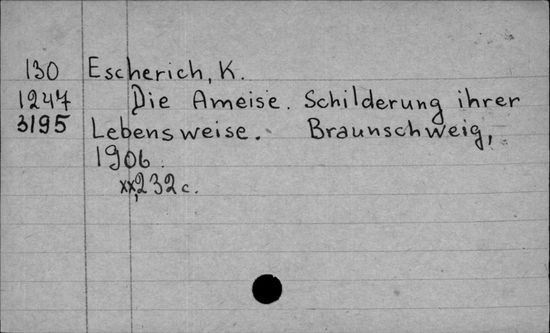 130 Escherich, K.
1247 Die Ameise. Schilderung ihrer
3195 Lebensweise. Braunschweig,
1906.
xx,232c.